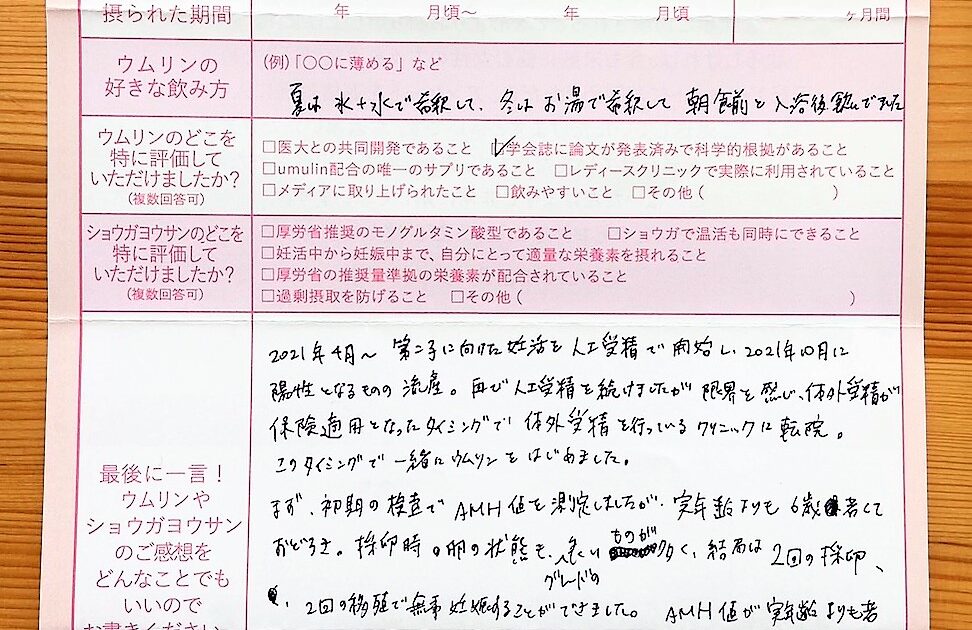 摂られた期間 年 月頃〜 年 月頃 ヶ月間
ウムリンの
好きな飲み方
(例)「〇〇に薄める」など
夏は 氷+水で希釈して、冬は お湯で希釈して 朝食前と入浴後飲んでました
ウムリンのどこを
特に評価して
いただけましたか?
(複数回答可)
□医大との共同開発であること ☑学会誌に論文が発表済みで科学的根拠があること
□umulin配合の唯一のサプリであること □レディースクリニックで実際に利用されていること
□メディアに取り上げられたこと □飲みやすいこと □その他( )
ショウガヨウサンのどこを
特に評価して
いただけましたか?
(複数回答可)
□厚労省推奨のモノグルタミン酸型であること □ショウガで温活も同時にできること
□妊活中から妊娠中まで、自分にとって適量な栄養素を摂れること
□厚労省の推奨量準拠の栄養素が配合されていること
□過剰摂取を防げること □その他( )
最後に一言!
ウムリンや
ショウガヨウサン
のご感想を
どんなことでも
いいので
お書きください。
2021年4月〜 第二子に向けた妊活を人工受精で開始し、2021年10月に
陽性となるものの流産。再び人工受精を続けましたが限界を感じ、体外受精が
保険適用となったタイミングで体外受精を行っているクリニックに転院。
このタイミングで一緒にウムリンをはじめました。
まず、初期の検査でAMH値を測定しましたが、実年齢よりも6歳若くて
おどろき。採卵時の卵の状態も、グレードの良いものが多く、結局は2回の採卵、
2回の移植で無事妊娠することができました。 AMH値が実年齢よりも若